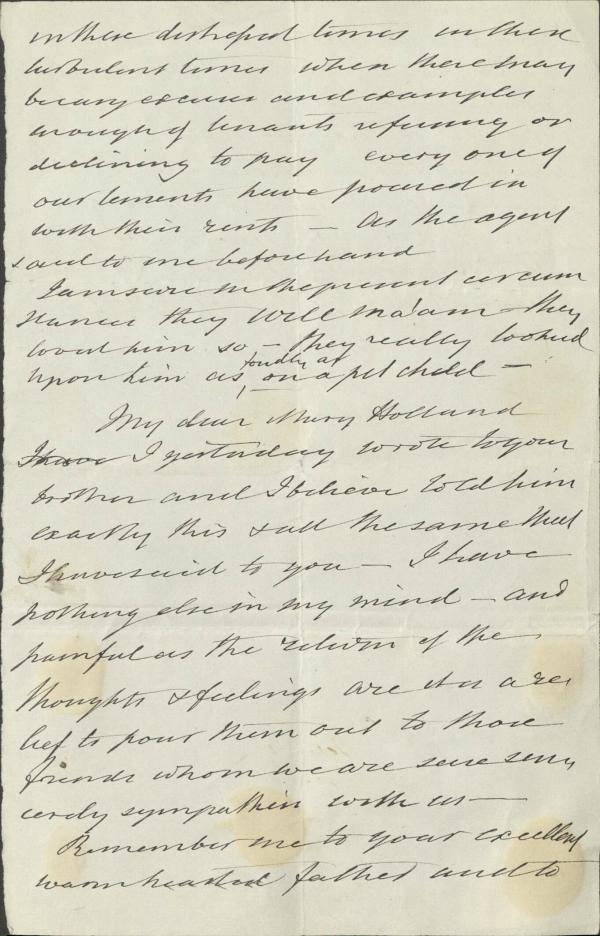 in these distressed times in these
turbulent times when there may
be any excuses and examples
enough of tenants refusing or
declining to pay every one of
our tenants have poured in
with their rents — As the agent
said to me beforehand
I am sure in the present circum
stances they will ma'am — they
loved him so — they really looked
upon him as, fondly as on a pet child —
My dear Mary Holland
I have I yesterday wrote to your
brother and I believe told him
exactly this & all the same that
I have said to you — I have
nothing else in my mind — and
painful as the return of the
thoughts & feelings are it is a re
lief to pour them out to those
friends whom we are sure sin
cerely sympathise with us —
Remember me to your excellent
warmhearted father and to